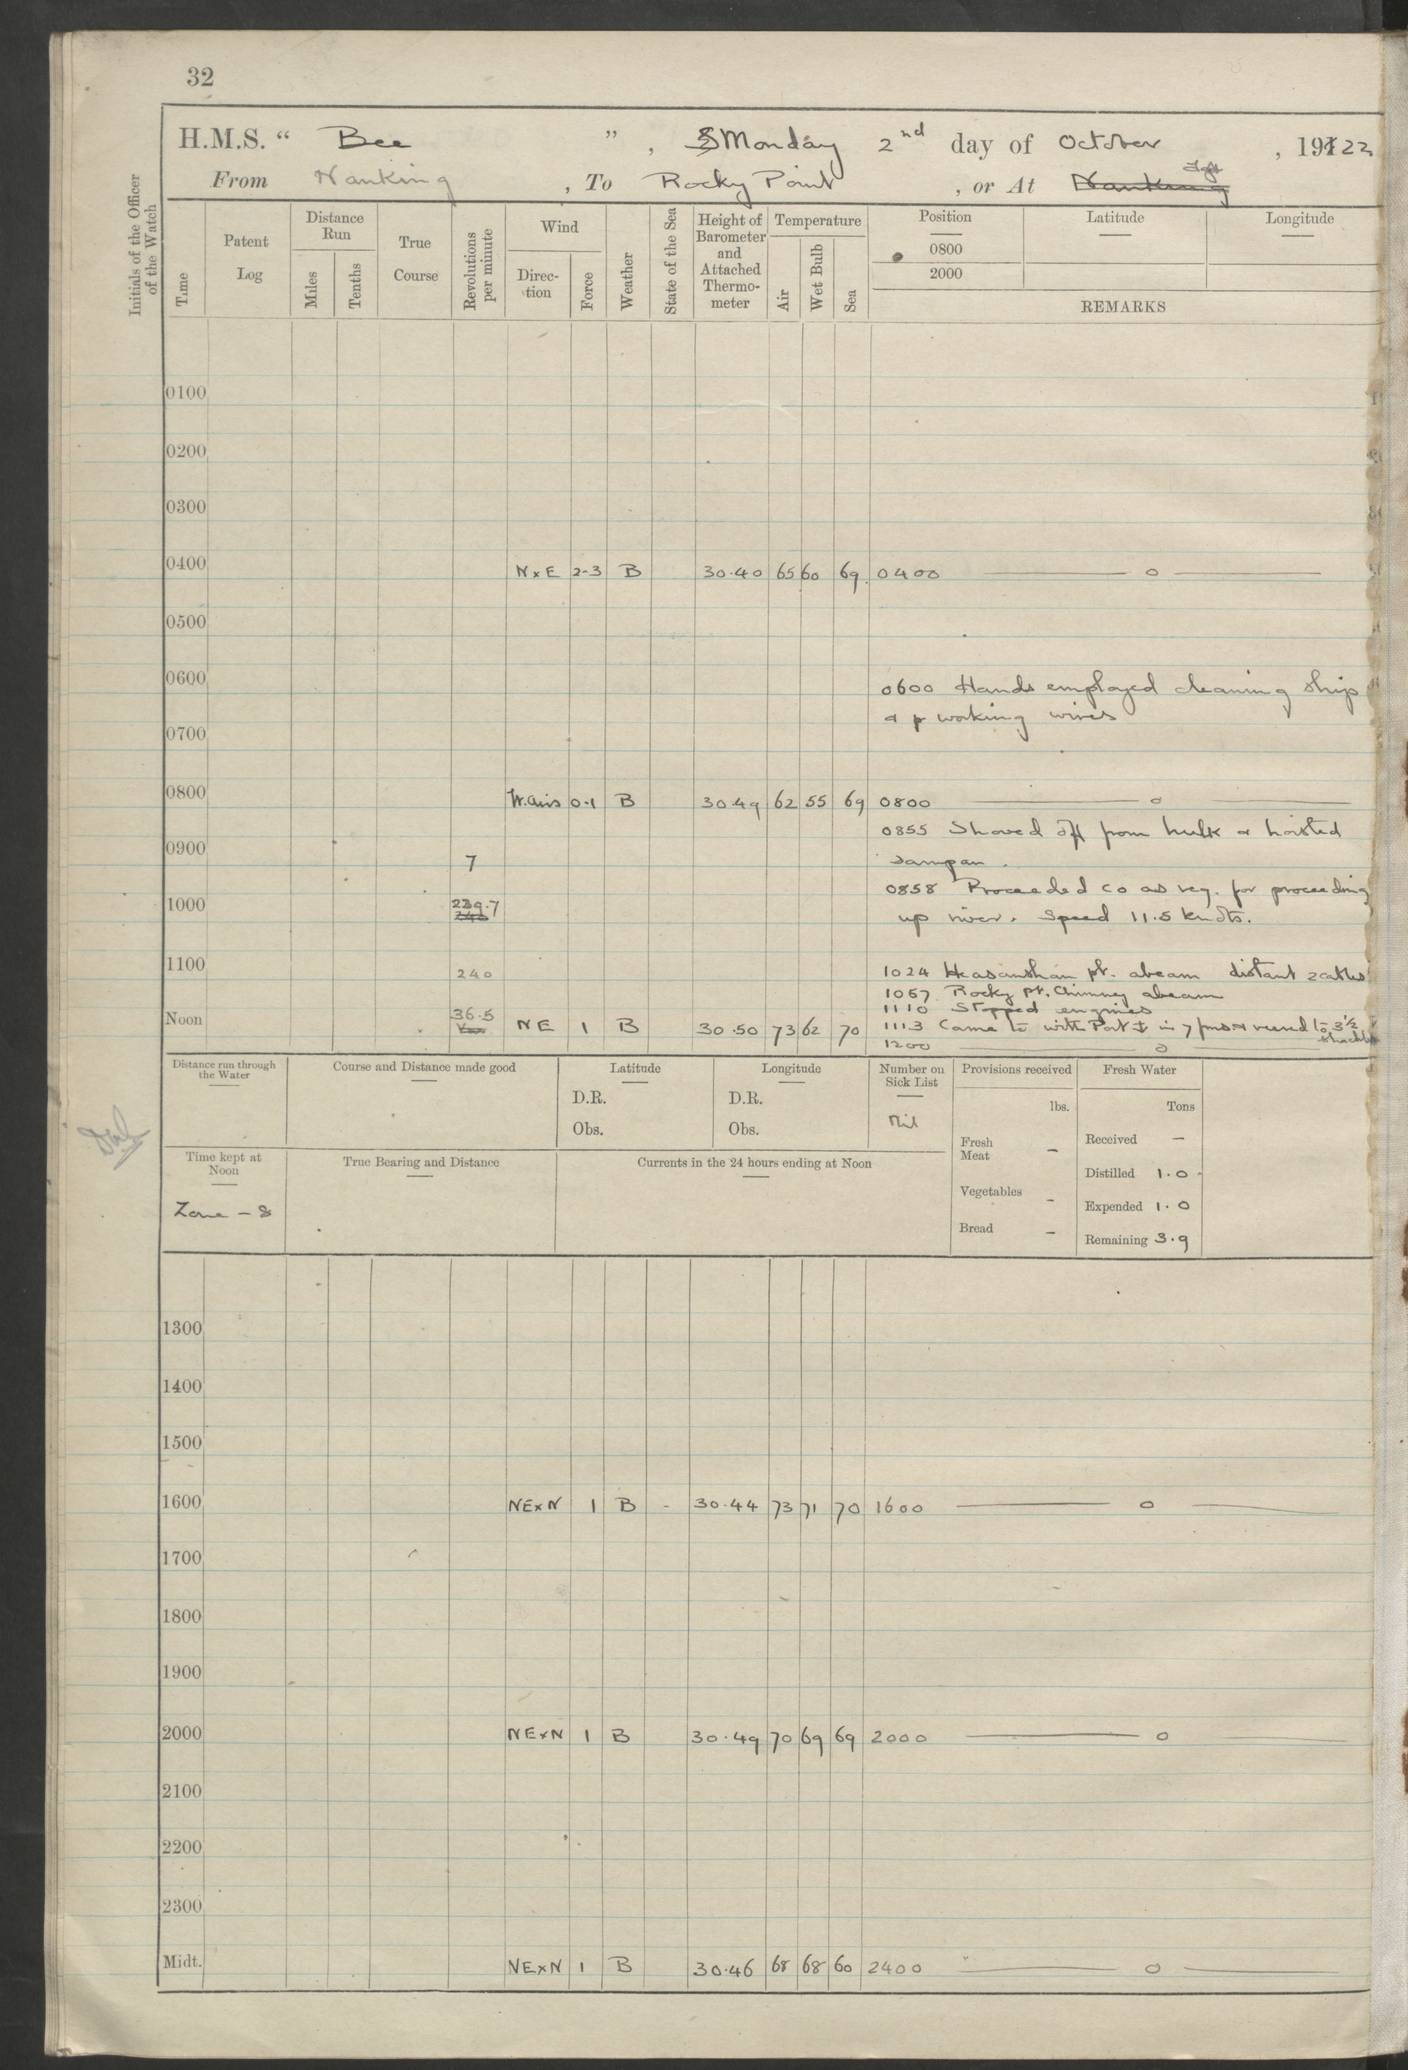 32
H.M.S. " Bee ", Monday 2nd day of October, 1922
From Nanking, To Rocky Point, or At Nanking
Initials of the Officer of the Watch
Time
Patent Log
Distance Run
Miles
Tenths
True Course
Revolutions per minute
Wind
Direc-tion
Force
Weather
State of the Sea
Height of Barometer and Attached Thermo-meter
Temperature
Air
Wet Bulb
Sea
Position
0800
2000
Latitude
Longitude
REMARKS
0100
0200
0300
0400 N x E 2-3 B 30.40 65 60 69 0400 — o —
0500
0600 0600 Hands employed cleaning ship
& p working wires
0700
0800 W. airs 0-1 B 30.49 62 55 69 0800 — o —
0855 Shoved off from hulk & hoisted
0900 7 sampan.
0858 Proceeded co as req. for proceeding
1000 239.7 240 up river. Speed 11.5 knots.
1100 240 1024 Heasanshan pt. abeam distant 2 cables
1057 Rocky Pt. Chimney abeam
1110 Stopped engines
Noon 36.5 NE 1 B 30.50 73 62 70 1113 Came to with Port ⚓ in 7 fms & veered to 3½ shackles
1200 — o —
Distance run through the Water
Course and Distance made good
Latitude
D.R.
Obs.
Longitude
D.R.
Obs.
Number on Sick List
Nil
Provisions received
lbs.
Fresh Meat -
Vegetables -
Bread -
Fresh Water
Tons
Received -
Distilled 1.0
Expended 1.0
Remaining 3.9
Time kept at Noon
Zone - 8
True Bearing and Distance
Currents in the 24 hours ending at Noon
1300
1400
1500
1600 NExN 1 B - 30.44 73 71 70 1600 — o —
1700
1800
1900
2000 NExN 1 B 30.49 70 69 69 2000 — o —
2100
2200
2300
Midt. NExN 1 B 30.46 68 68 60 2400 — o —